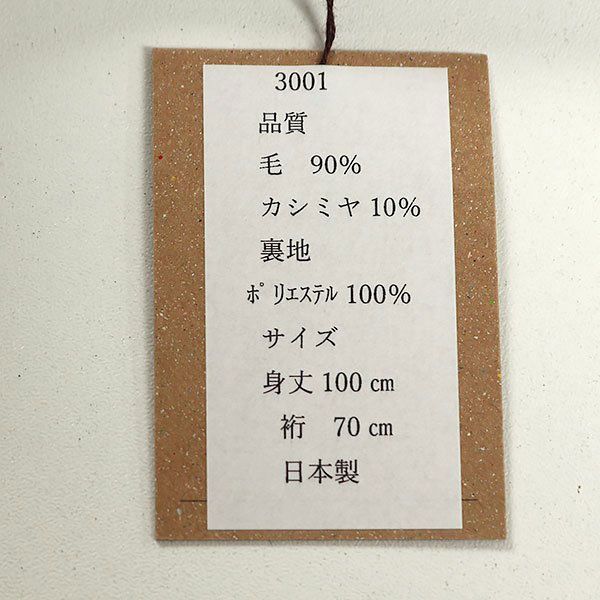 3001
品質
毛　90%
カシミヤ 10%
裏地
ﾎﾟﾘｴｽﾃﾙ 100%
サイズ
身丈 100 ㎝
裄　70 ㎝
日本製